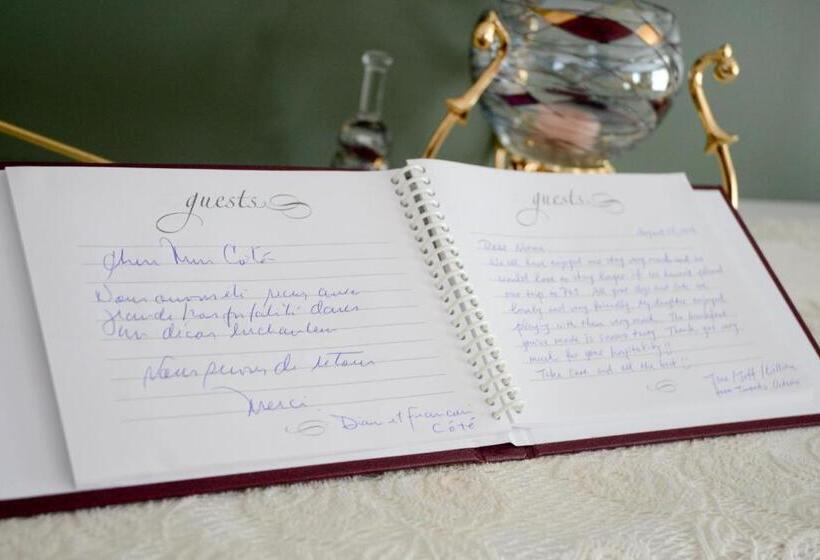 guests
Mme Côté
Nous avons été reçus avec
grande hospitalité dans
un décor enchanteur
Nous serons de retour
Merci
et
Côté
guests
August
Dear
We all have enjoyed our stay very much and we
would love to stay longer if we haven't planned
our trip to PEI. All your dogs and cats are
lovely and very friendly. My daughter enjoyed
playing with them very much. The breakfast
you've made is Thank you very
much for your hospitality!!
Take care and all the best!!
/Jeff/
from Toronto, Ontario